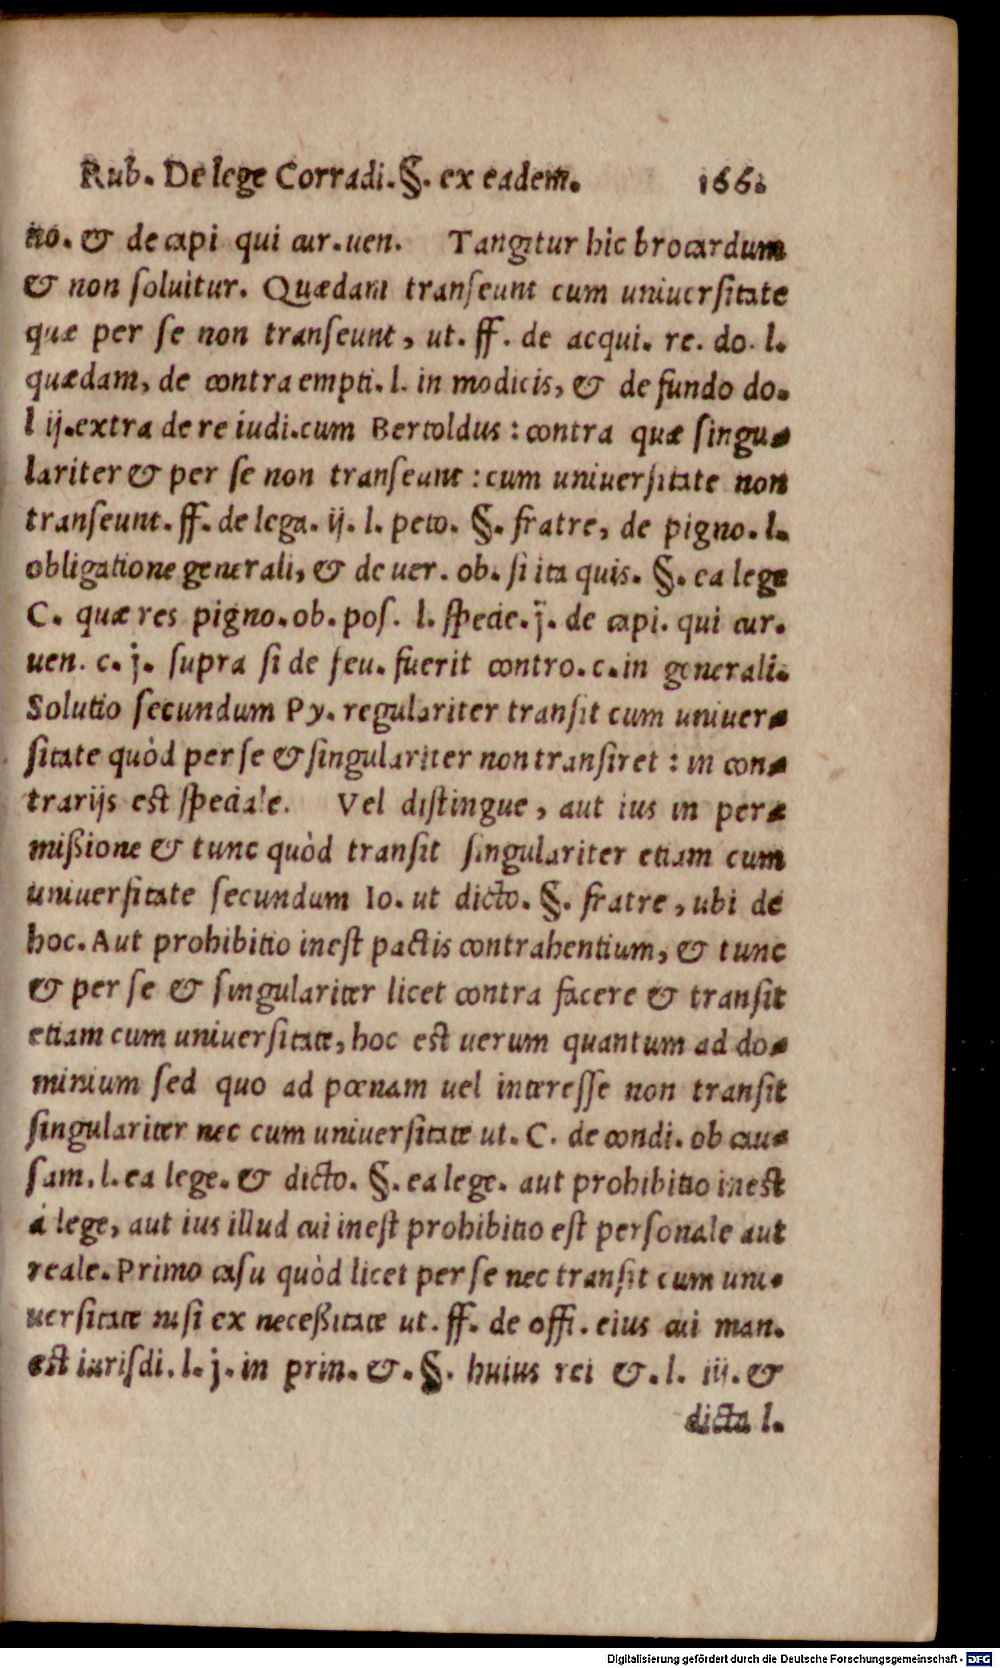 Rub. De lege Corradi. §. ex eadem. 166.
no. & de capi qui cur. uen. Tangitur hic brocardum
& non soluitur. Quædam transeunt cum uniuersitate
quæ per se non transeunt, ut. ff. de acqui. re. do. l.
quædam, de contra empti. l. in modicis, & de fundo do.
l ij. extra de re iudi. cum Bertoldus : contra quæ singu-
lariter & per se non transeunt : cum uniuersitate non
transeunt. ff. de lega. ij. l. peto. §. fratre, de pigno. l.
obligatione generali, & de uer. ob. si ita quis. §. ea lege
C. quæ res pigno. ob. pos. l. specie. j. de capi. qui cur.
uen. c. j. supra si de feu. fuerit contro. c. in generali.
Solutio secundum Py. regulariter transit cum uniuer-
sitate quòd per se & singulariter non transiret : in con-
trarijs est speciale. Vel distingue, aut ius in per-
mißione & tunc quòd transit singulariter etiam cum
uniuersitate secundum Io. ut dicto. §. fratre, ubi de
hoc. Aut prohibitio inest pactis contrahentium, & tunc
& per se & singulariter licet contra facere & transit
etiam cum uniuersitate, hoc est uerum quantum ad do-
minium sed quo ad pœnam uel interesse non transit
singulariter nec cum uniuersitate ut. C. de condi. ob cau-
sam. l. ea lege. & dicto. §. ea lege. aut prohibitio inest
à lege, aut ius illud cui inest prohibitio est personale aut
reale. Primo casu quòd licet per se nec transit cum uni-
uersitate nisi ex neceßitate ut. ff. de offi. eius cui man.
est iurisdi. l. j. in prin. &. §. huius rei &. l. iij. &
dicta l.
Digitalisierung gefördert durch die Deutsche Forschungsgemeinschaft - DFG